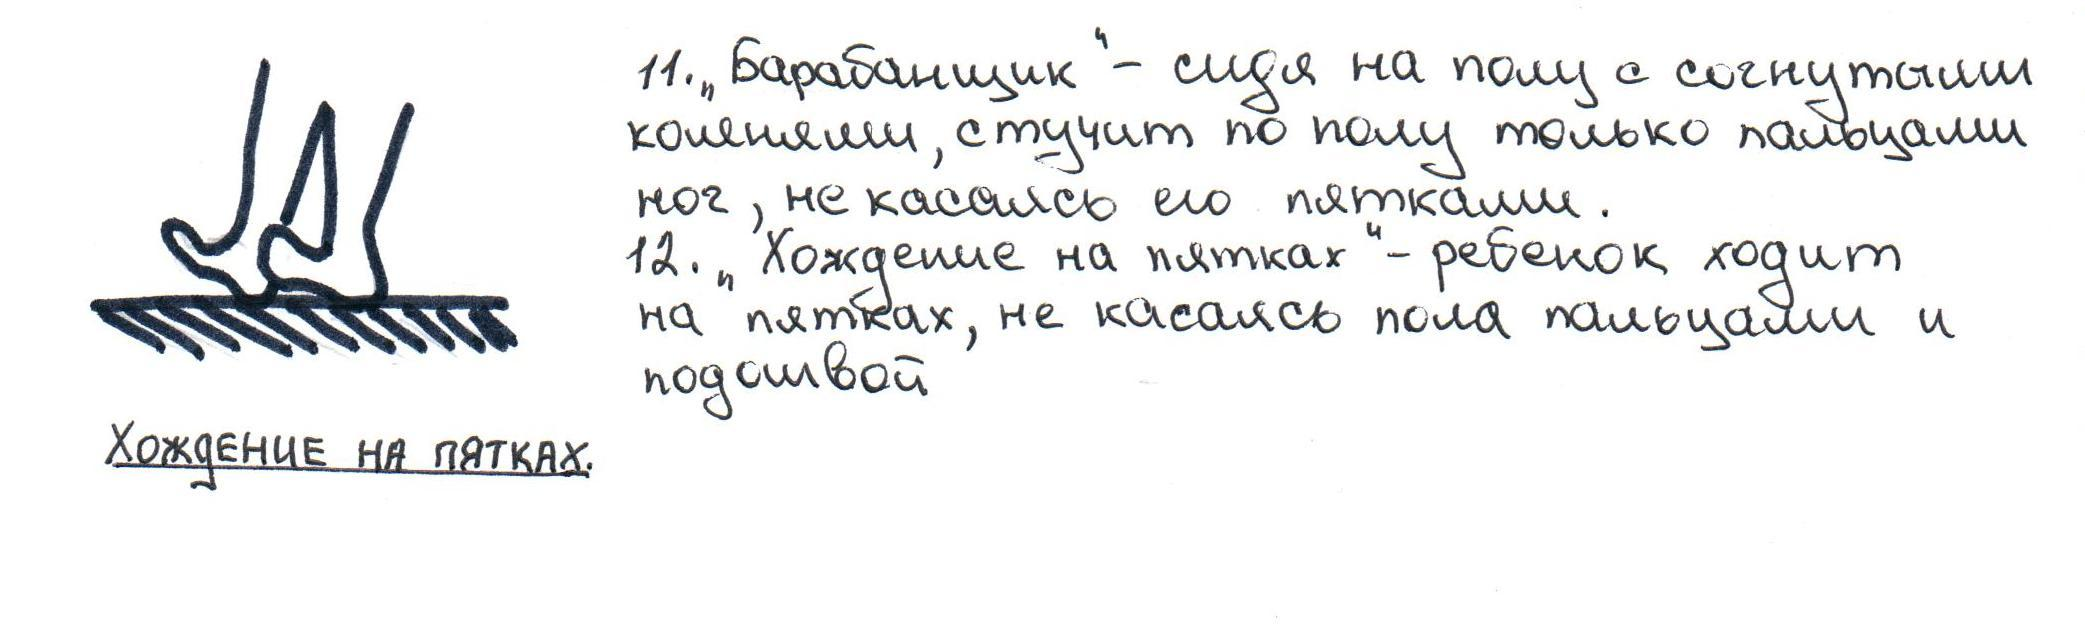 11. „Барабанщик“ - сидя на полу с согнутыми
коленями, стучит по полу только пальцами
ног, не касаясь его пятками.
12. „Хождение на пятках“ - ребенок ходит
на пятках, не касаясь пола пальцами и
подошвой
Хождение на пятках.